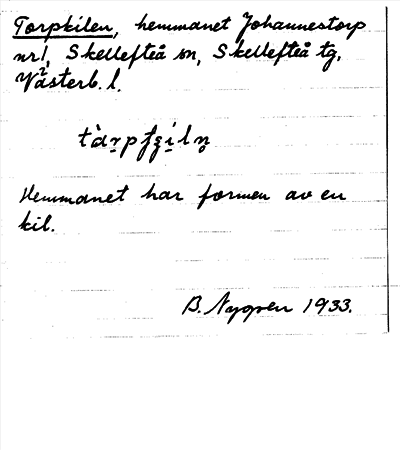 Torpkilen, hemmanet Johannestorp
nr 1, Skellefteå sn, Skellefteå tg,
Västerb. l.
Hemmanet har formen av en
kil.
B. Nygren 1933.